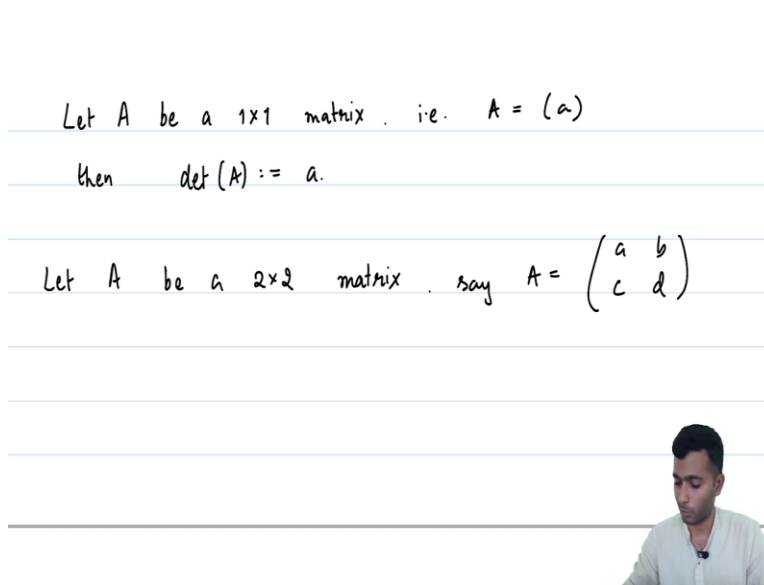 Let A be a 1×1 matrix. i.e. A = (a)
then det(A) := a.
Let A be a 2×2 matrix. say A = (a b
c d)